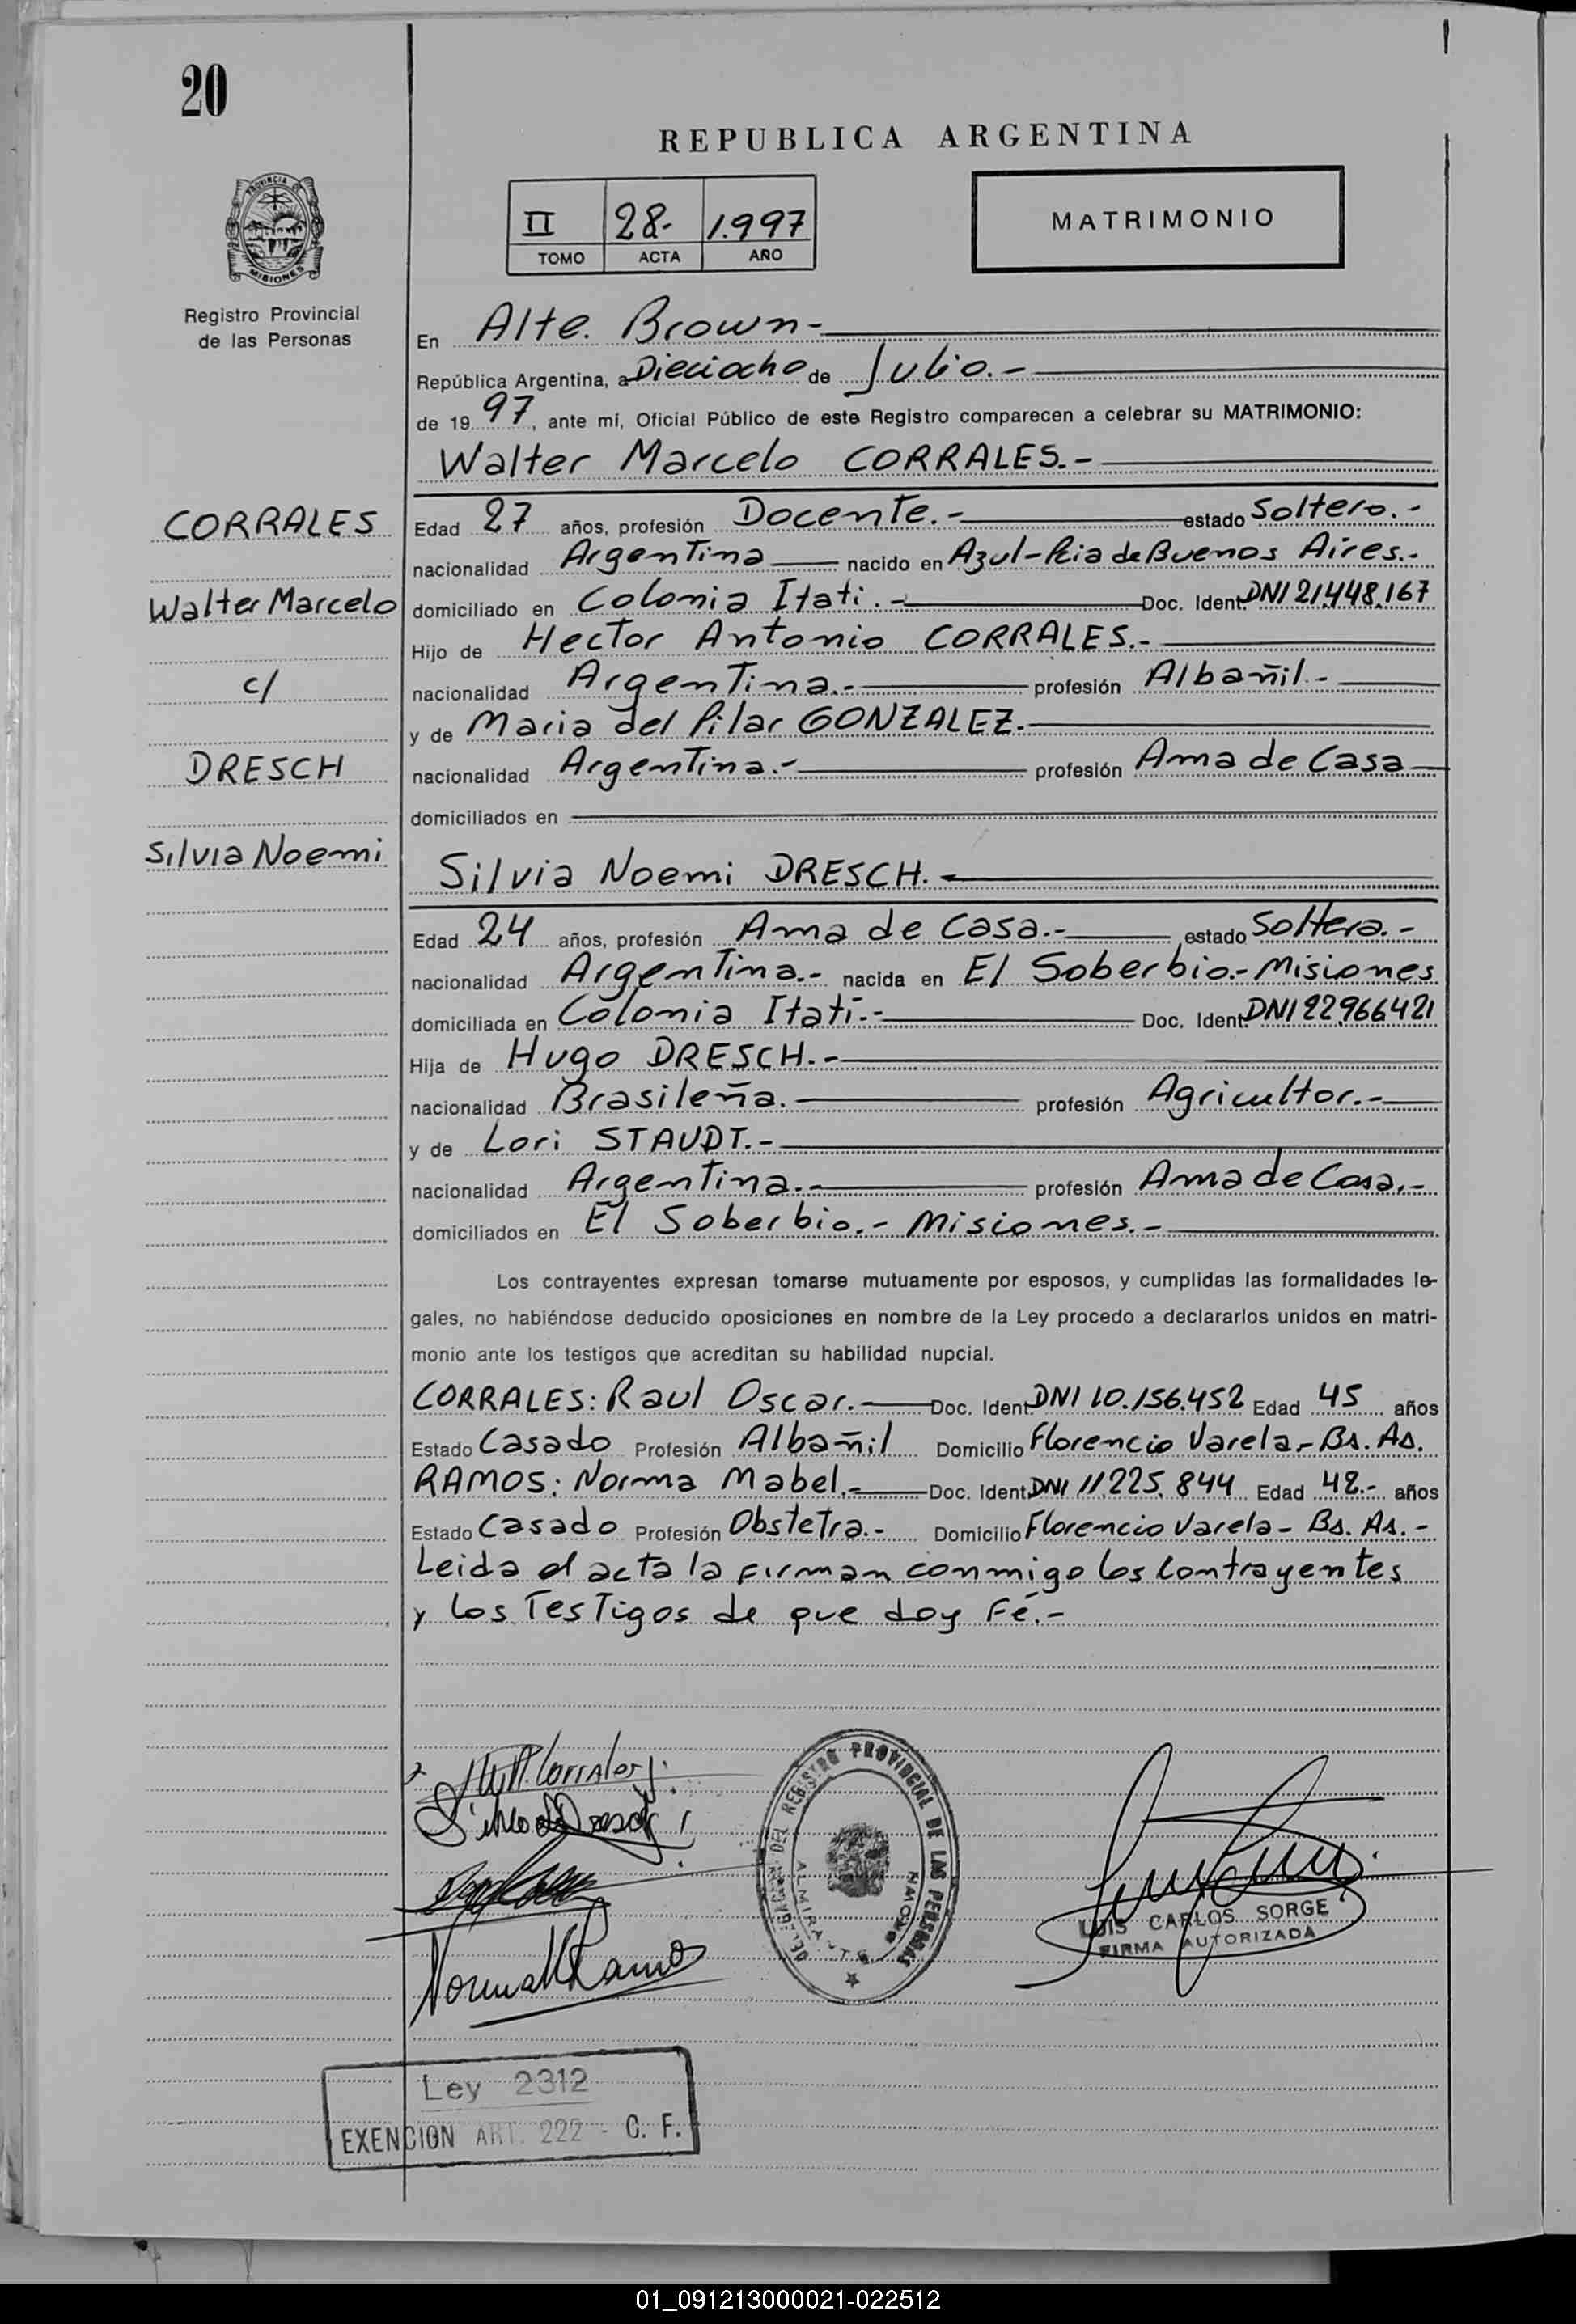 20
REPUBLICA ARGENTINA
PROVINCIA DE
MISIONES
Registro Provincial
de las Personas
II 28.- 1.997
TOMO ACTA AÑO
MATRIMONIO
En Alte. Brown.-
República Argentina, a Dieciocho de Julio.-
de 19 97, ante mí, Oficial Público de este Registro comparecen a celebrar su MATRIMONIO:
Walter Marcelo CORRALES.-
CORRALES
Walter Marcelo
c/
DRESCH
Silvia Noemi
Edad 27 años, profesión Docente.- estado Soltero.-
nacionalidad Argentina nacido en Azul-Pcia de Buenos Aires.-
domiciliado en Colonia Itati.- Doc. Ident. DNI 21.448.167
Hijo de Hector Antonio CORRALES.-
nacionalidad Argentina.- profesión Albañil.-
y de Maria del Pilar GONZALEZ.-
nacionalidad Argentina.- profesión Ama de Casa
domiciliados en
Silvia Noemi DRESCH.-
Edad 24 años, profesión Ama de Casa.- estado Soltera.-
nacionalidad Argentina.- nacida en El Soberbio.- Misiones
domiciliada en Colonia Itatí.- Doc. Ident. DNI 22.966421
Hija de Hugo DRESCH.-
nacionalidad Brasileña. profesión Agricultor.-
y de Lori STAUDT.-
nacionalidad Argentina.- profesión Ama de Casa.-
domiciliados en El Soberbio.- Misiones.-
Los contrayentes expresan tomarse mutuamente por esposos, y cumplidas las formalidades le-
gales, no habiéndose deducido oposiciones en nombre de la Ley procedo a declararlos unidos en matri-
monio ante los testigos que acreditan su habilidad nupcial.
CORRALES: Raul Oscar.- Doc. Ident. DNI 10.156.452 Edad 45 años
Estado Casado Profesión Albañil Domicilio Florencio Varela.- Bs. As.
RAMOS: Norma Mabel.- Doc. Ident. DNI 11.225.844 Edad 42.- años
Estado Casado Profesión Obstetra.- Domicilio Florencio Varela- Bs. As.-
Leida el acta la firman conmigo los Contrayentes
y los Testigos de que doy Fé.-
DELEGACION DEL REGISTRO PROVINCIAL DE LAS PERSONAS
ALMIRANTE BROWN
Norma M Ramos
LUIS CARLOS SORGE
FIRMA AUTORIZADA
Ley 2312
EXENCION ART. 222 - C. F.
01_091213000021-022512